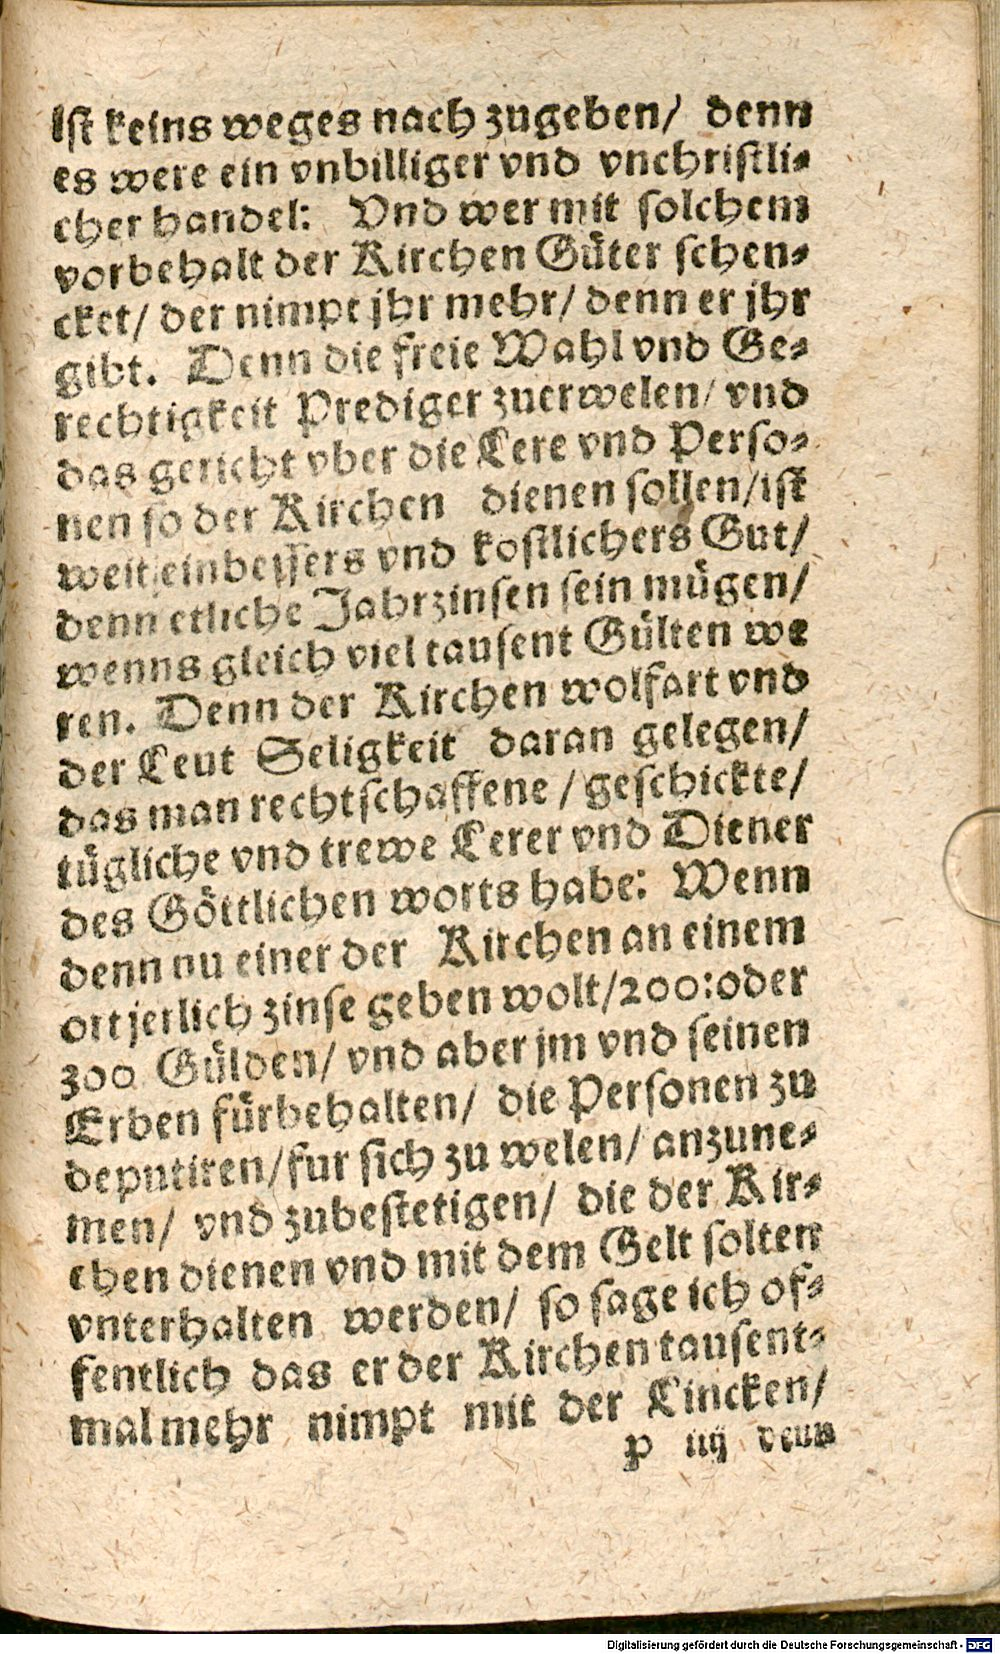 Ist keins weges nach zugeben/ denn
es were ein vnbilliger vnd vnchristli⸗
cher handel: Vnd wer mit solchem
vorbehalt der Kirchen Güter schen⸗
cket/ der nimpt jhr mehr/ denn er jhr
gibt. Denn die freie Wahl vnd Ge⸗
rechtigkeit Prediger zuerwelen/ vnd
das gericht vber die Lere vnd Perso⸗
nen so der Kirchen dienen sollen/ist
weit ein bessers vnd kostlichers Gut/
denn etliche Jahrzinsen sein mügen/
wenns gleich viel tausent Gülten we
ren. Denn der Kirchen wolfart vnd
der Leut Seligkeit daran gelegen/
das man rechtschaffene / geschickte/
tügliche vnd trewe Lerer vnd Diener
des Göttlichen worts habe: Wenn
denn nu einer der Kirchen an einem
ort jerlich zinse geben wolt/200:oder
300 Gülden/ vnd aber jm vnd seinen
Erben fürbehalten/ die Personen zu
deputiren/fur sich zu welen/ anzune⸗
men/ vnd zubestetigen/ die der Kir⸗
chen dienen vnd mit dem Gelt solten
vnterhalten werden/ so sage ich of⸗
fentlich das er der Kirchen tausent⸗
mal mehr nimpt mit der Lincken/
p iiij denn
Digitalisierung gefördert durch die Deutsche Forschungsgemeinschaft - DFG